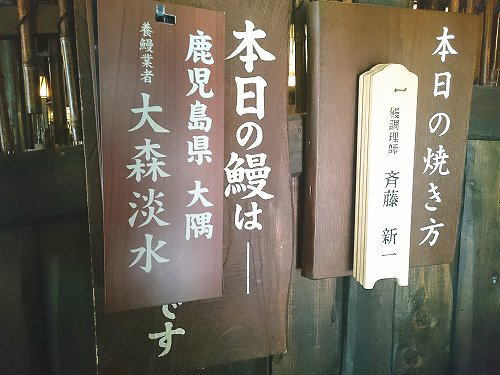 本日の焼き方
一 鰻調理師 斉藤 新一
本日の鰻は——
鹿児島県 大隅
養鰻業者 大森淡水
です